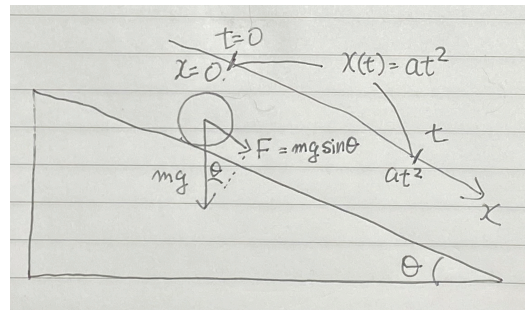 t=0
x=0
x(t)=at²
t
at²
x
F=mg sinθ
mg
θ
θ